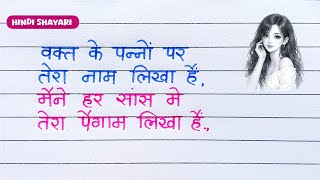 HINDI SHAYARI
वक्त के पन्नों पर
तेरा नाम लिखा हैं,
मैने हर सांस मे
तेरा पैगाम लिखा हैं.,